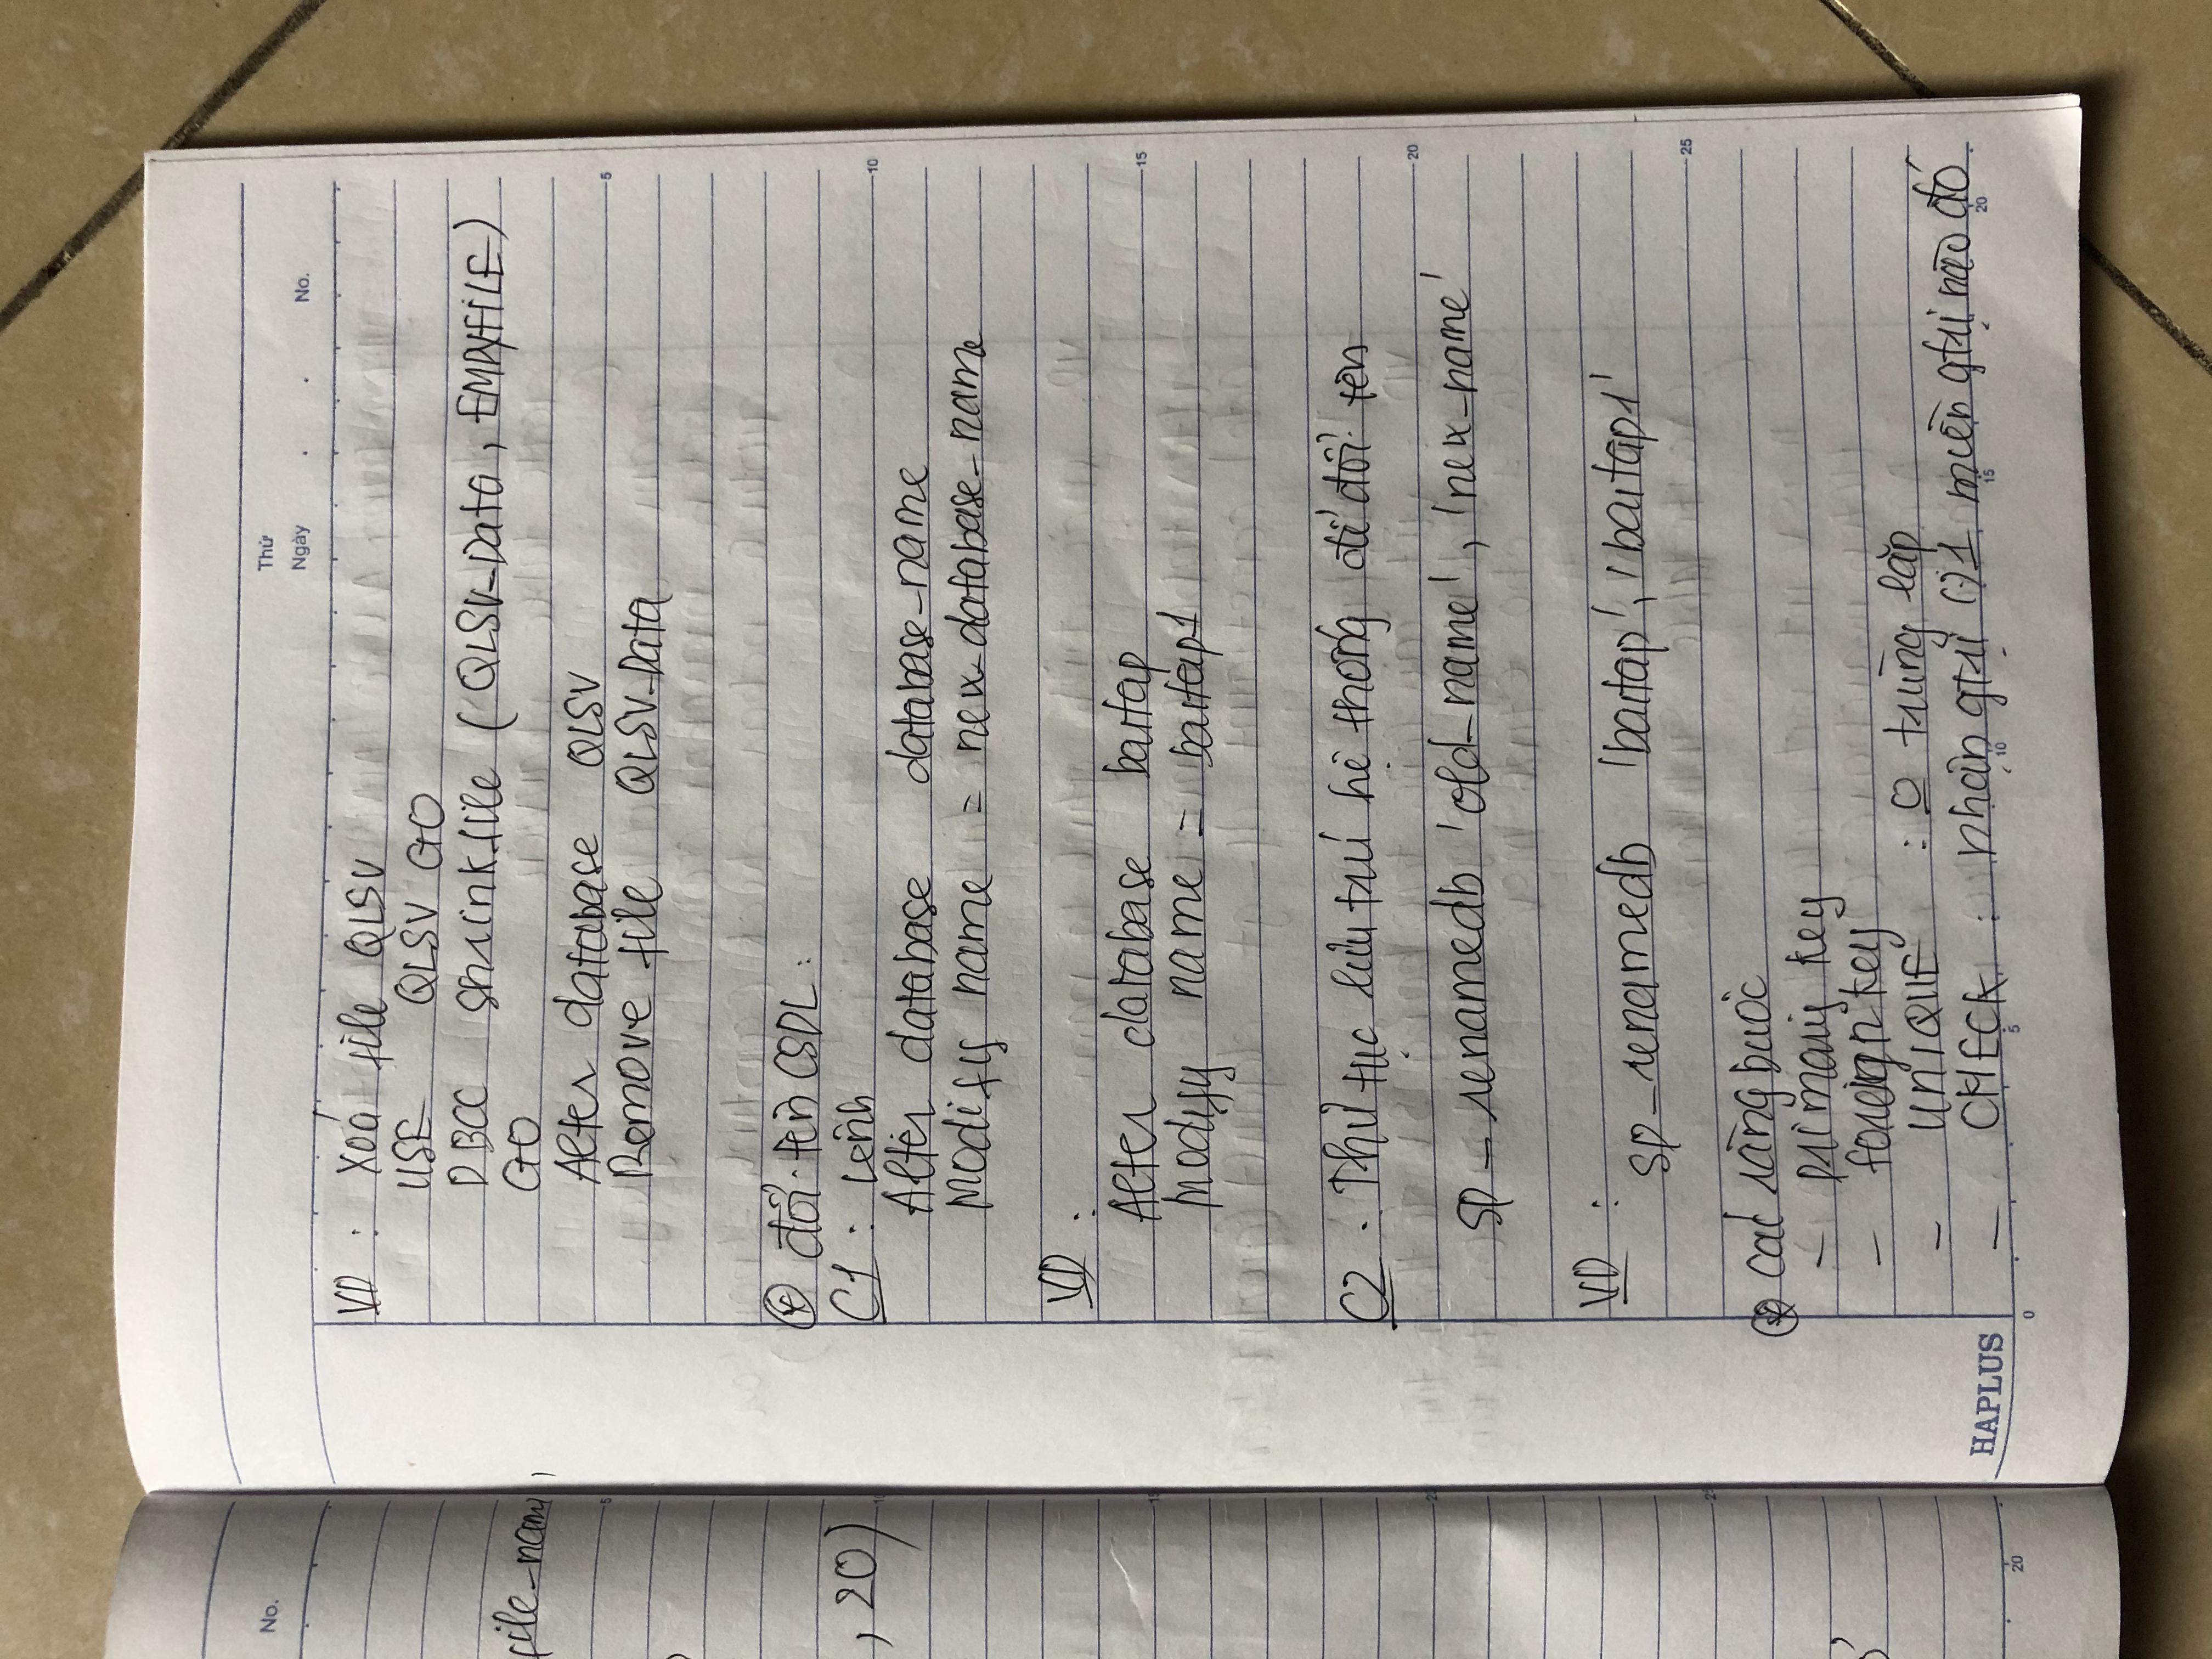 No.
file-name,
, 20)
20
Thứ
Ngày . . No.
VD : Xoá file QLSV
USE QLSV GO
DBCC Shrinkfile (QLSV-Data, EMPYFILE)
GO
Alter database QLSV
Remove file QLSV-Data
5
⊛ đổi tên CSDL :
C1 : Lệnh
10
Alter database database-name
Modify name = new-database-name
VD :
Alter database baitap
15
Modify name = baitap1
C2 . Thủ tục lưu trú hệ thống để đổi tên
20
sp-renamedb 'old-name', 'new-name'
VD :
sp-renamedb 'baitap', 'baitap1'
25
⊛ các ràng buộc
- primary key
- foreign key
- UNIQUE : O trùng lặp
- CHECK : nhận gtrị 1 miền gtrị nào đó
HAPLUS
0 5 10 15 20